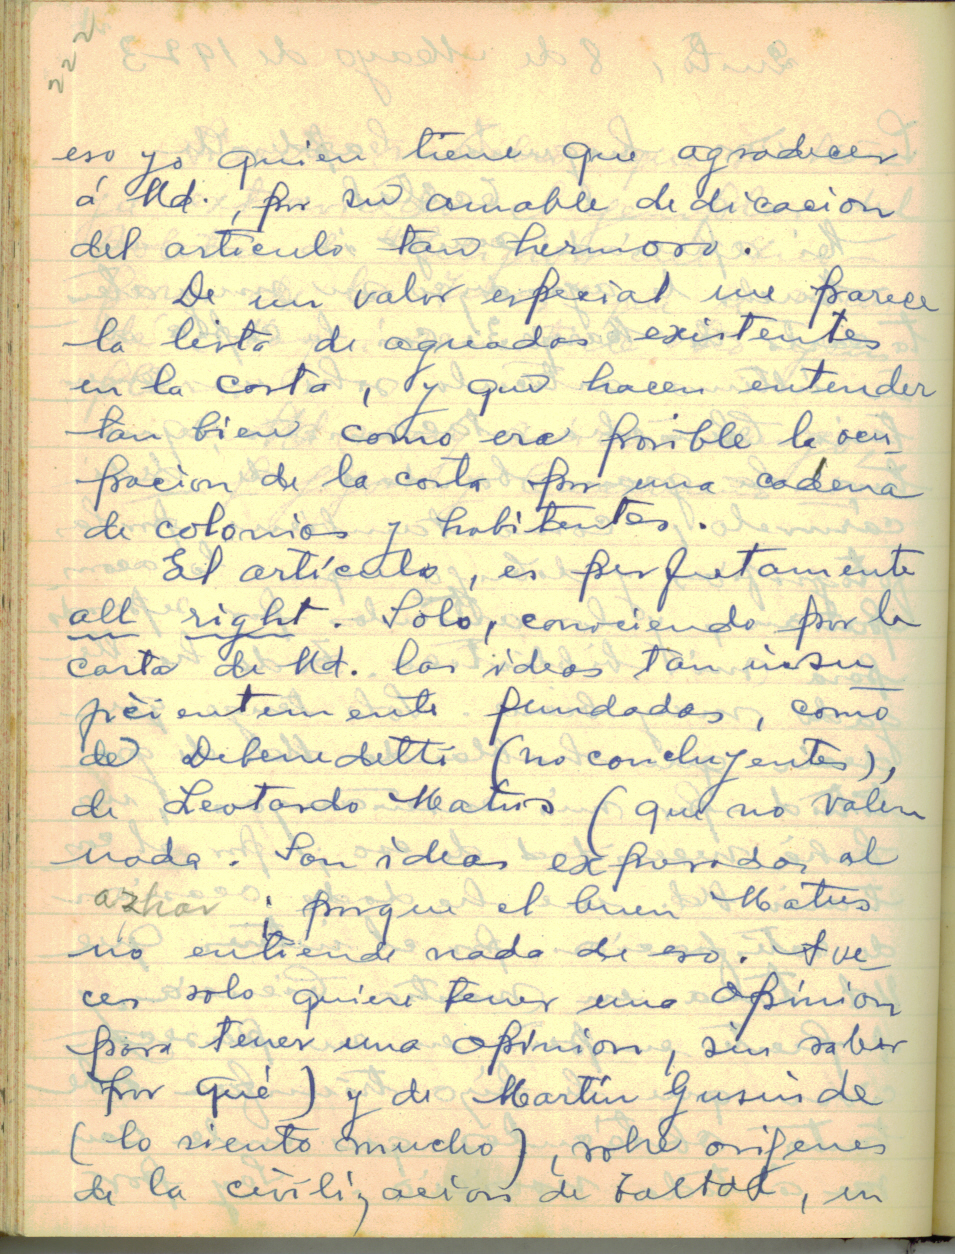 222
eso yo quien tiene que agradecer
á Ud., por su amable dedicacion
del artículo tan hermoso.
De un valor especial me parece
la lista de aguadas existentes
en la costa, y que hacen entender
tan bien como era posible la ocu-
pacion de la costa por una cadena
de colonias y habitantes.
El artículo, es perfectamente
all right. Solo, conociendo por la
carta de Ud. las ideas tan insu
ficientemente fundadas, como
de Debenedetti (no concluyentes),
de Leotardo Matus (que no valen
nada. Son ideas expresadas al
azhar; porque el buen Matus
no entiende nada de eso. A ve-
ces solo quiere tener una opinion
para tener una opinion, sin saber
por qué) y de Martín Gusinde
(lo siento mucho), sobre orígenes
de la civilizacion de Taltal, en